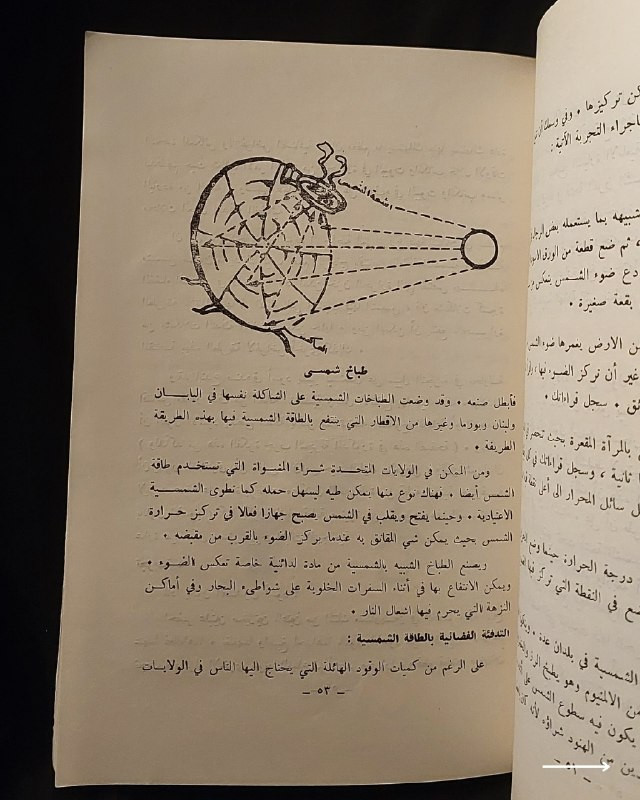 اشعة الشمس
طباخ شمسى
فأبطل صنعه . وقد وضعت الطباخات الشمسية على الشاكلة نفسها في اليابان
ولبنان وبورما وغيرها من الاقطار التي ينتفع بالطاقة الشمسية فيها بهذه الطريقة
الطريقة .
ومن الممكن في الولايات المتحدة شراء المشواة التي تستخدم طاقة
الشمس أيضا . فهناك نوع منها يمكن طيه ليسهل حمله كما تطوى الشمسية
الاعتيادية . وحينما يفتح ويقلب في الشمس يصبح جهازا فعالا في تركيز حرارة
الشمس بحيث يمكن شي المقانق به عندما يركز الضوء بالقرب من مقبضه .
ويصنع الطباخ الشبيه بالشمسية من مادة لدائنية خاصة تعكس الضوء .
ويمكن الانتفاع بها في أثناء السفرات الخلوية على شواطىء البحار وفي أماكن
النزهة التي يحرم فيها اشعال النار .
التدفئة الفضائية بالطاقة الشمسية :
على الرغم من كميات الوقود الهائلة التي يحتاج اليها الناس في الولايات
– ٥٣ –
كن تركيزها . وفي
اجراء التجربة الآتية :
شبيهه بما يستعمله بعض
، ثم ضع قطعة من الورق
دع ضوء الشمس ينعكس
بقعة صغيرة .
من الارض يغمرها ضوء
غير أن تركز الضوء
. سجل قراءاتك .
بالمرآة المقعرة بحيث
ثانية ، وسجل قراءاتك في
سائل المحرار الى أعلى
درجة الحرارة حينما
في النقطة التي تركز فيها
الشمسية في بلدان عدة .
من الالمنيوم وهو يطبخ
يكون فيه سطوع الشمس
من الهنود شراؤه لأنه